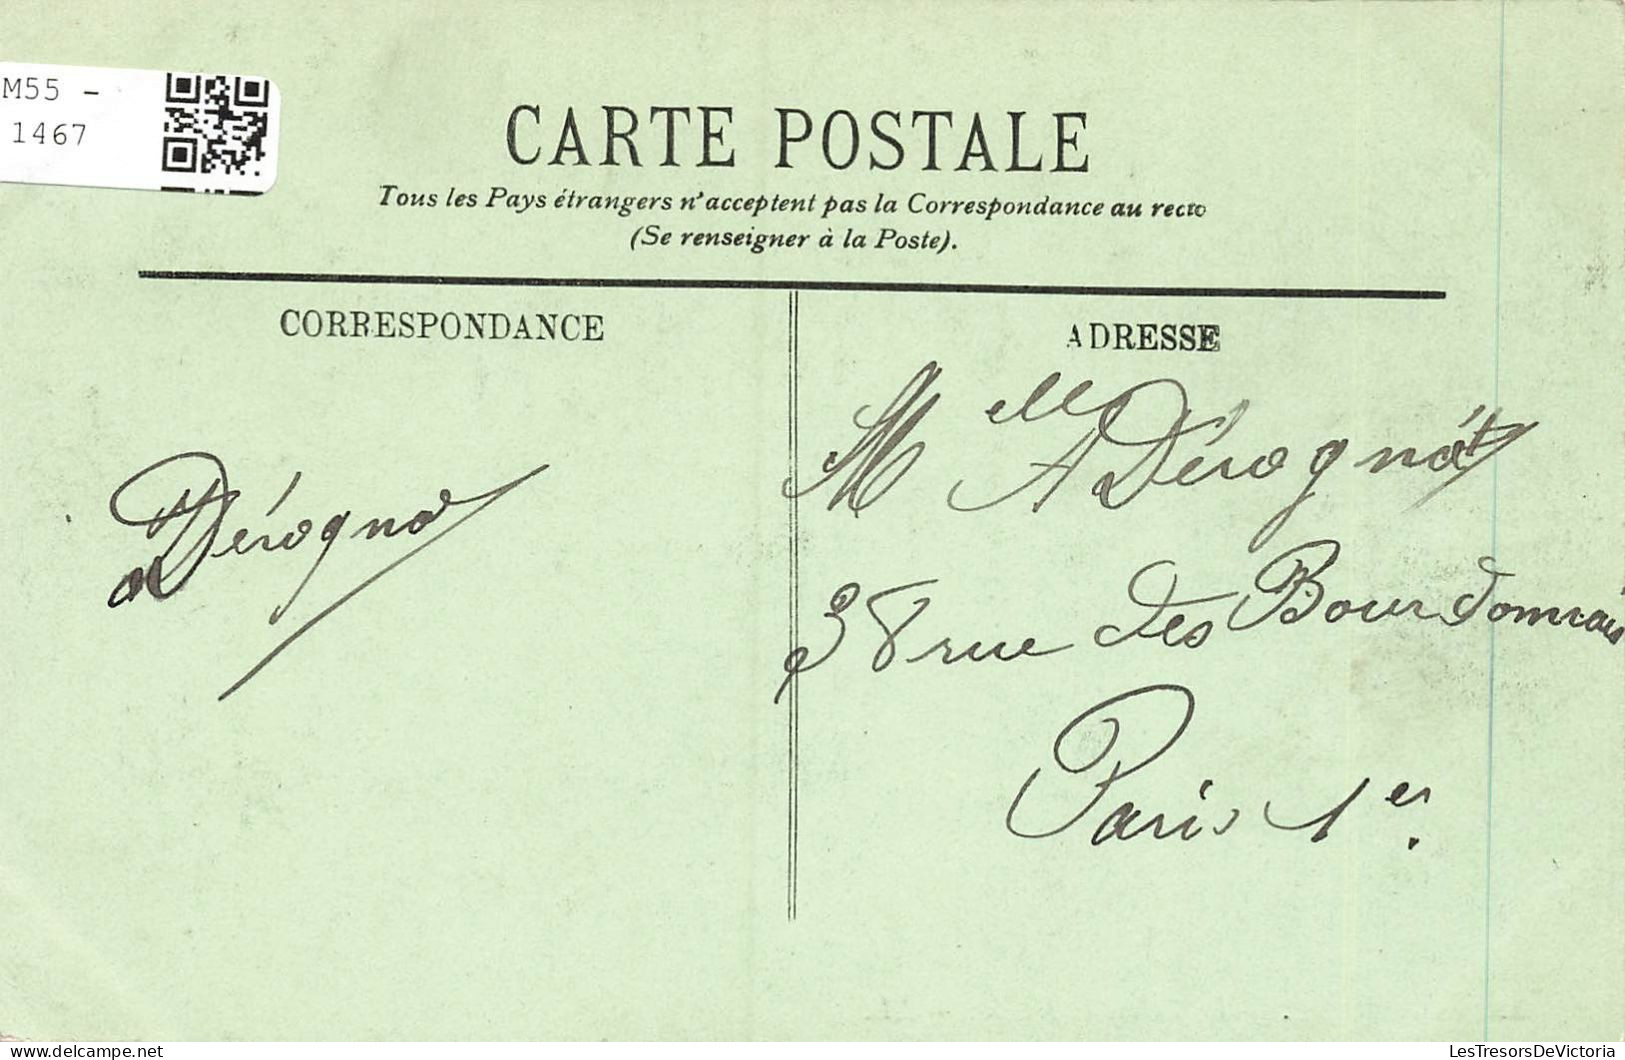 M55 -
1467
CARTE POSTALE
Tous les Pays étrangers n'acceptent pas la Correspondance au recto
(Se renseigner à la Poste).
CORRESPONDANCE
ADRESSE
Melle A Dérognat
Dérognat
38 rue des Bourdonnais
Paris 1er.
LesTresorsDeVictoria